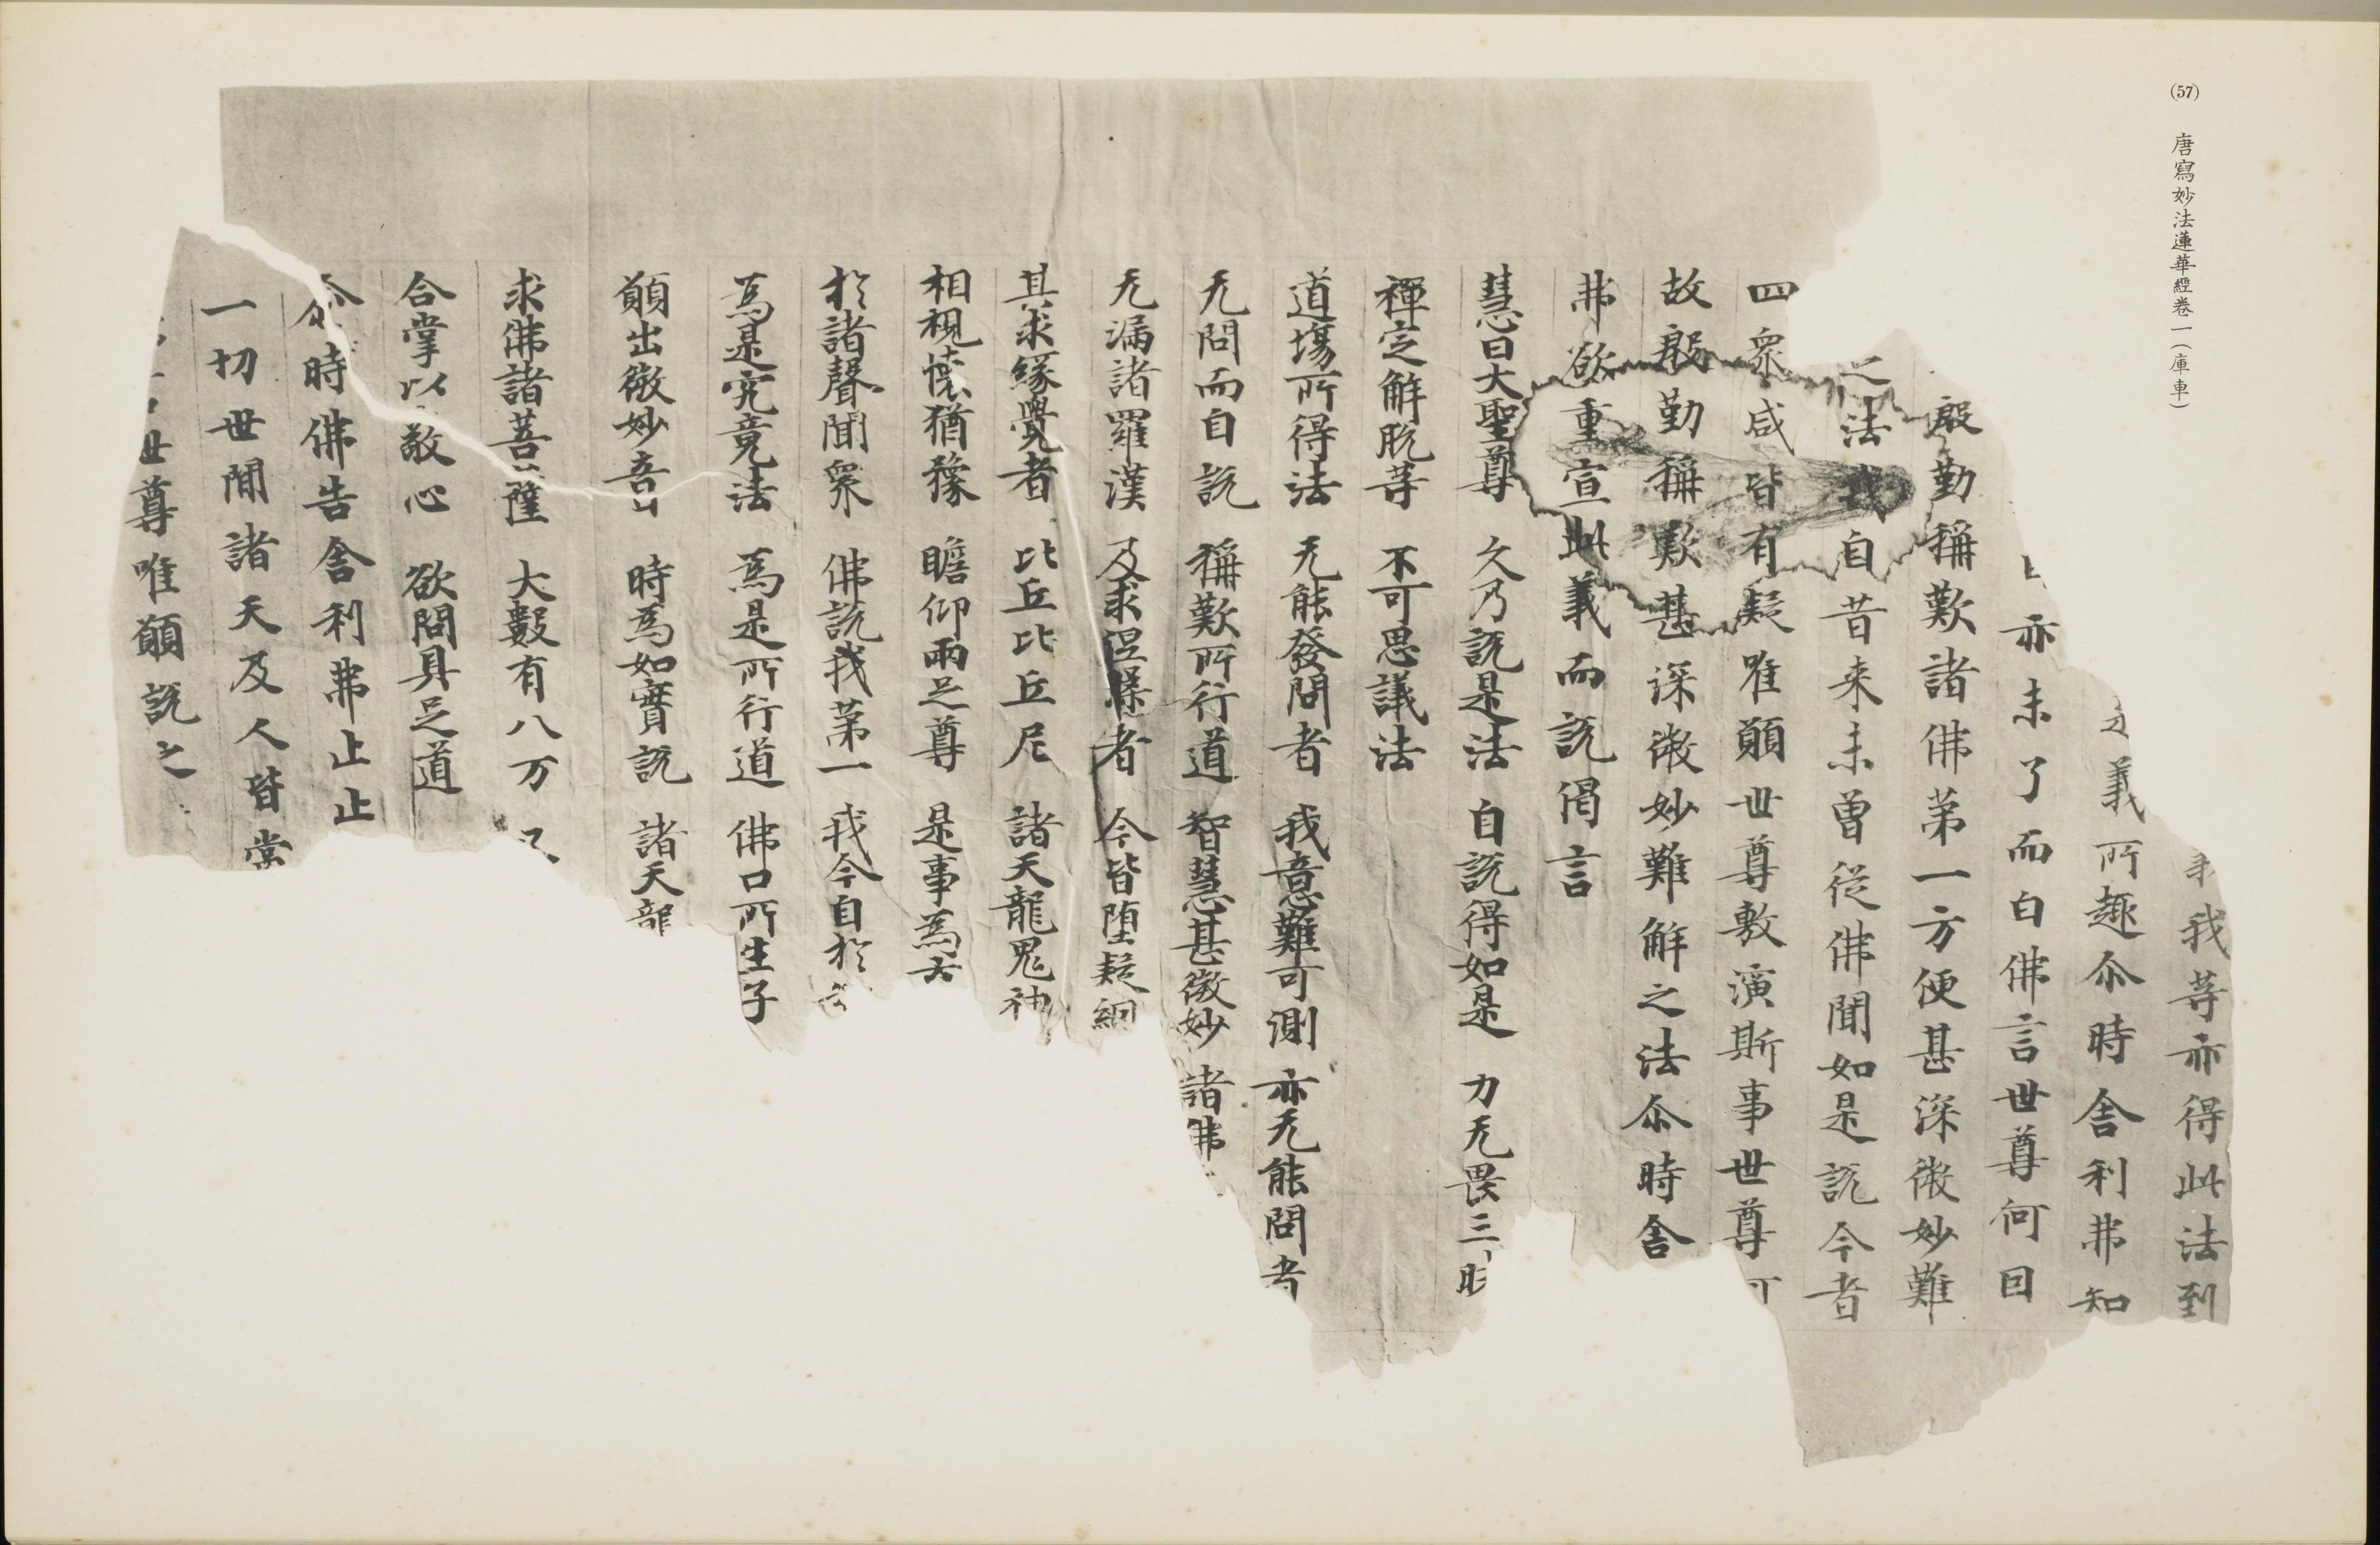 (57) 唐寫妙法蓮華經卷一（庫車）
我等亦得此法到
義所趣尒時舍利弗知
亦未了而白佛言世尊何因
殷勤稱歎諸佛第一方便甚深微妙難
之法我自昔来未曾從佛聞如是説今者
四眾咸皆有疑唯願世尊敷演斯事世尊
故殷勤稱歎甚深微妙難解之法尒時舍
弗欲重宣此義而説偈言
慧日大聖尊 久乃説是法 自説得如是 力无畏三
禪定解脱等 不可思議法
道塲所得法 无能發問者 我意難可測 亦无能問者
无問而自説 稱歎所行道 智慧甚微妙 諸佛
无漏諸羅漢 及求涅槃者 今皆墮疑網
其求緣覺者 比丘比丘尼 諸天龍鬼神
相視懷猶豫 瞻仰兩足尊 是事為
於諸聲聞眾 佛説我第一 我今自於
為是究竟法 為是所行道 佛口所生子
願出微妙音 時為如實説 諸天龍
求佛諸菩薩 大數有八万
合掌以敬心 欲問具足道
尒時佛告舍利弗止止
一切世間諸天及人皆當
世尊唯願説之